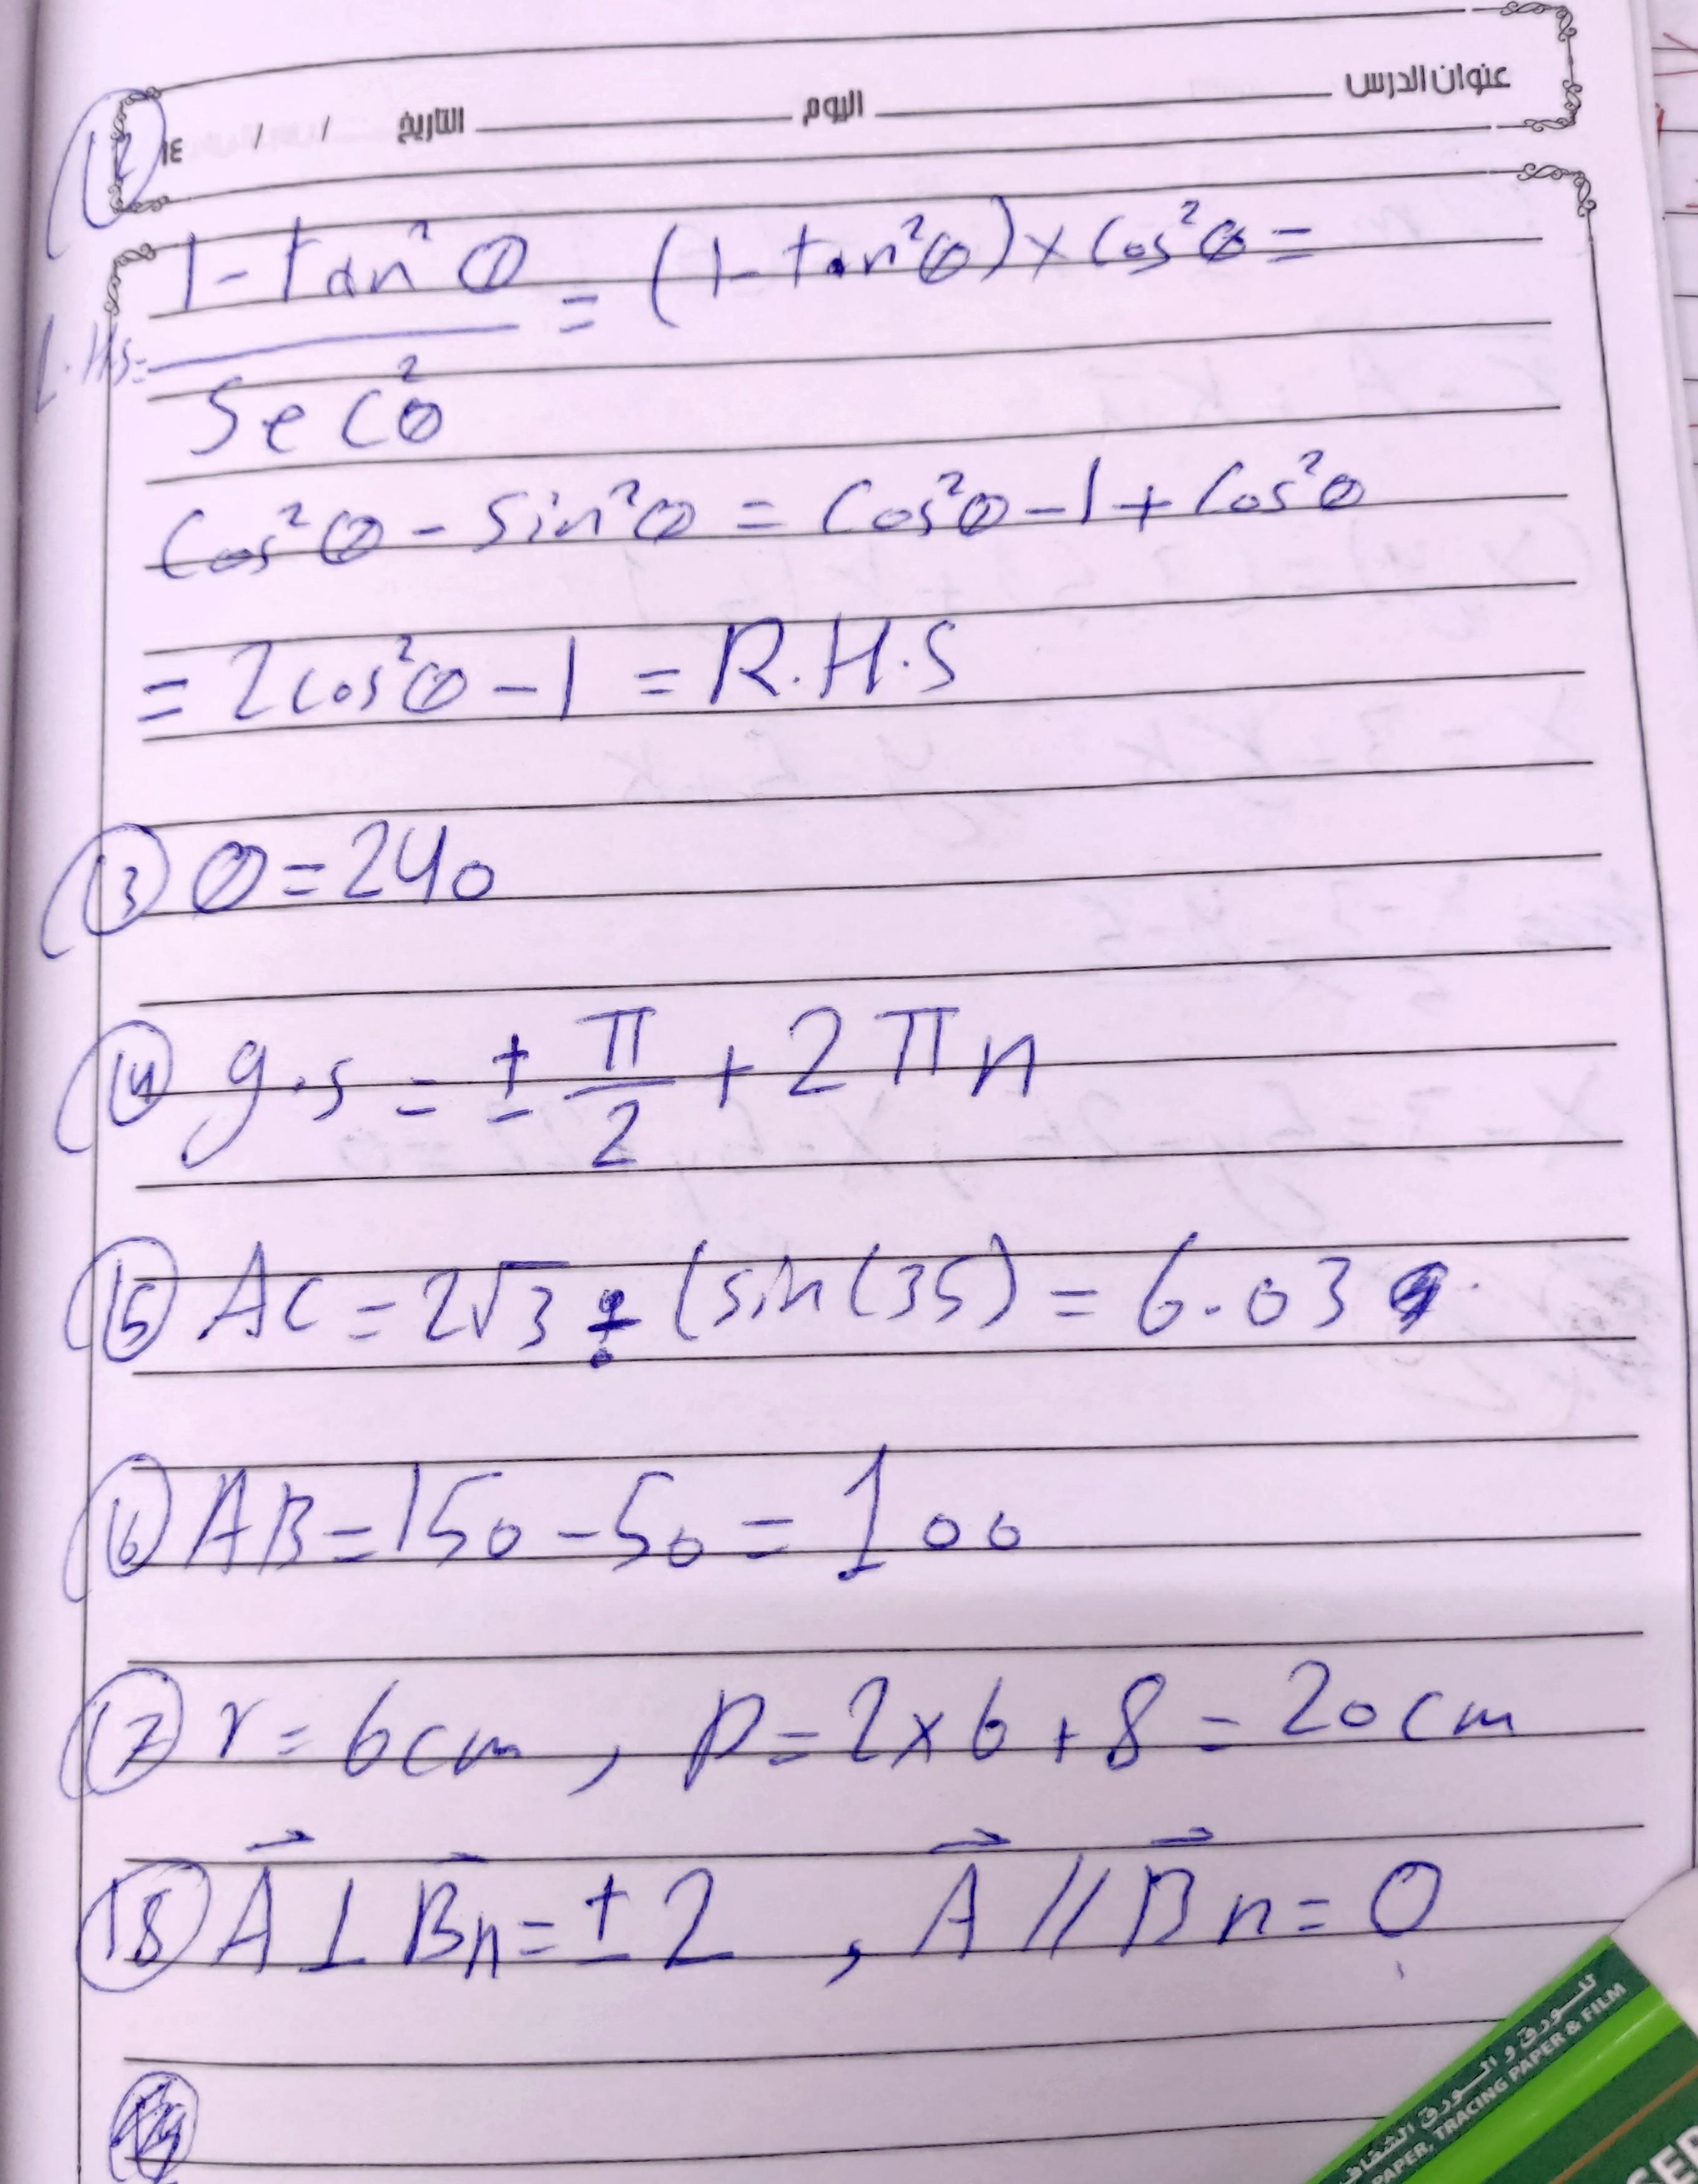 عنوان الدرس اليوم التاريخ / / ١٤
(12)
L.H.S = (1 - tan²θ) / sec²θ = (1 - tan²θ) × cos²θ =
cos²θ - sin²θ = cos²θ - 1 + cos²θ
= 2cos²θ - 1 = R.H.S
(13) θ = 240
(14) g.s = ± π/2 + 2πn
(15) AC = 2√3 ÷ (sin(35) = 6.03
(16) AB = 150 - 50 = 100
(17) r = 6cm , p = 2×6 + 8 = 20cm
(18) A⃗ ⊥ B⃗ n = ±2 , A⃗ // B⃗ n = 0
تلـورق و الـورق الشفاف
PAPER, TRACING PAPER & FILM